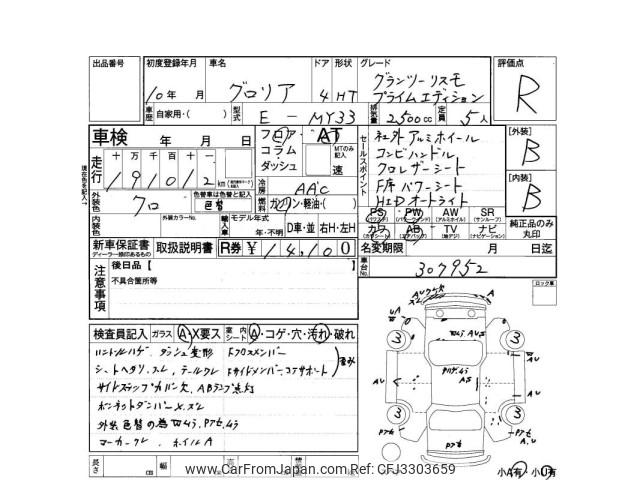 出品番号 初度登録年月 車名 ドア 形状 グレード 評価点
10年 月 グロリア 4 HT グランツーリスモ プライムエディション R
車歴 自家用・( ) 型式 E - MY33 排気量 2500cc 定員 5人
車検 年 月 日 フロア・コラム・ダッシュ AT MTのみ記入 速
走行 十万千百十一 191012 km
冷房 AAC
外装色 クロ 色替車は色替と記入 色替 燃料 ガソリン・軽油・( )
内装色 外装カラーNo. 輸入車 モデル年式 年・不明 D車・並 右H・左H
新車保証書 ディーラー捺印あるもの 取扱説明書 R券 ¥ 14,100
セールスポイント
社外アルミホイール
コンビハンドル
クロレザーシート
F席パワーシート
HIDオートライト
PS PW AW SR
カワ AB TV ナビ
[外装] B
[内装] B
純正品のみ丸印
名変期限 月 日迄
車台No. 307952
注意事項 後日品【
不具合箇所等
ロック車
検査員記入 ガラス A・X要ス 室内シート A・コゲ・穴・汚れ・破れ
ハンドルハゲ、ダッシュ変形 Fクロスメンバー
シートヘタリ、スレ、テールクレ Fサイドメンバー、コアサポート
サイドステップカバー欠、ABランプ点灯
ボンネットダンパーX
外装色替の為
マーカークレ、ホイルA
3 3 3 3
長さ cm 幅 cm 高
小A有・小U有
www.CarFromJapan.com Ref: CFJ3303659